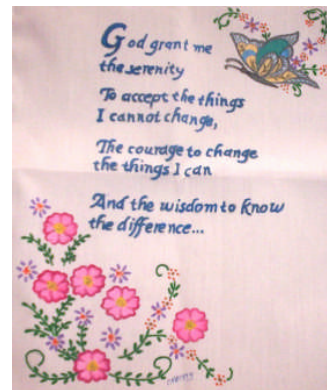 God grant me
the serenity
To accept the things
I cannot change,
The courage to change
the things I can
And the wisdom to know
the difference...